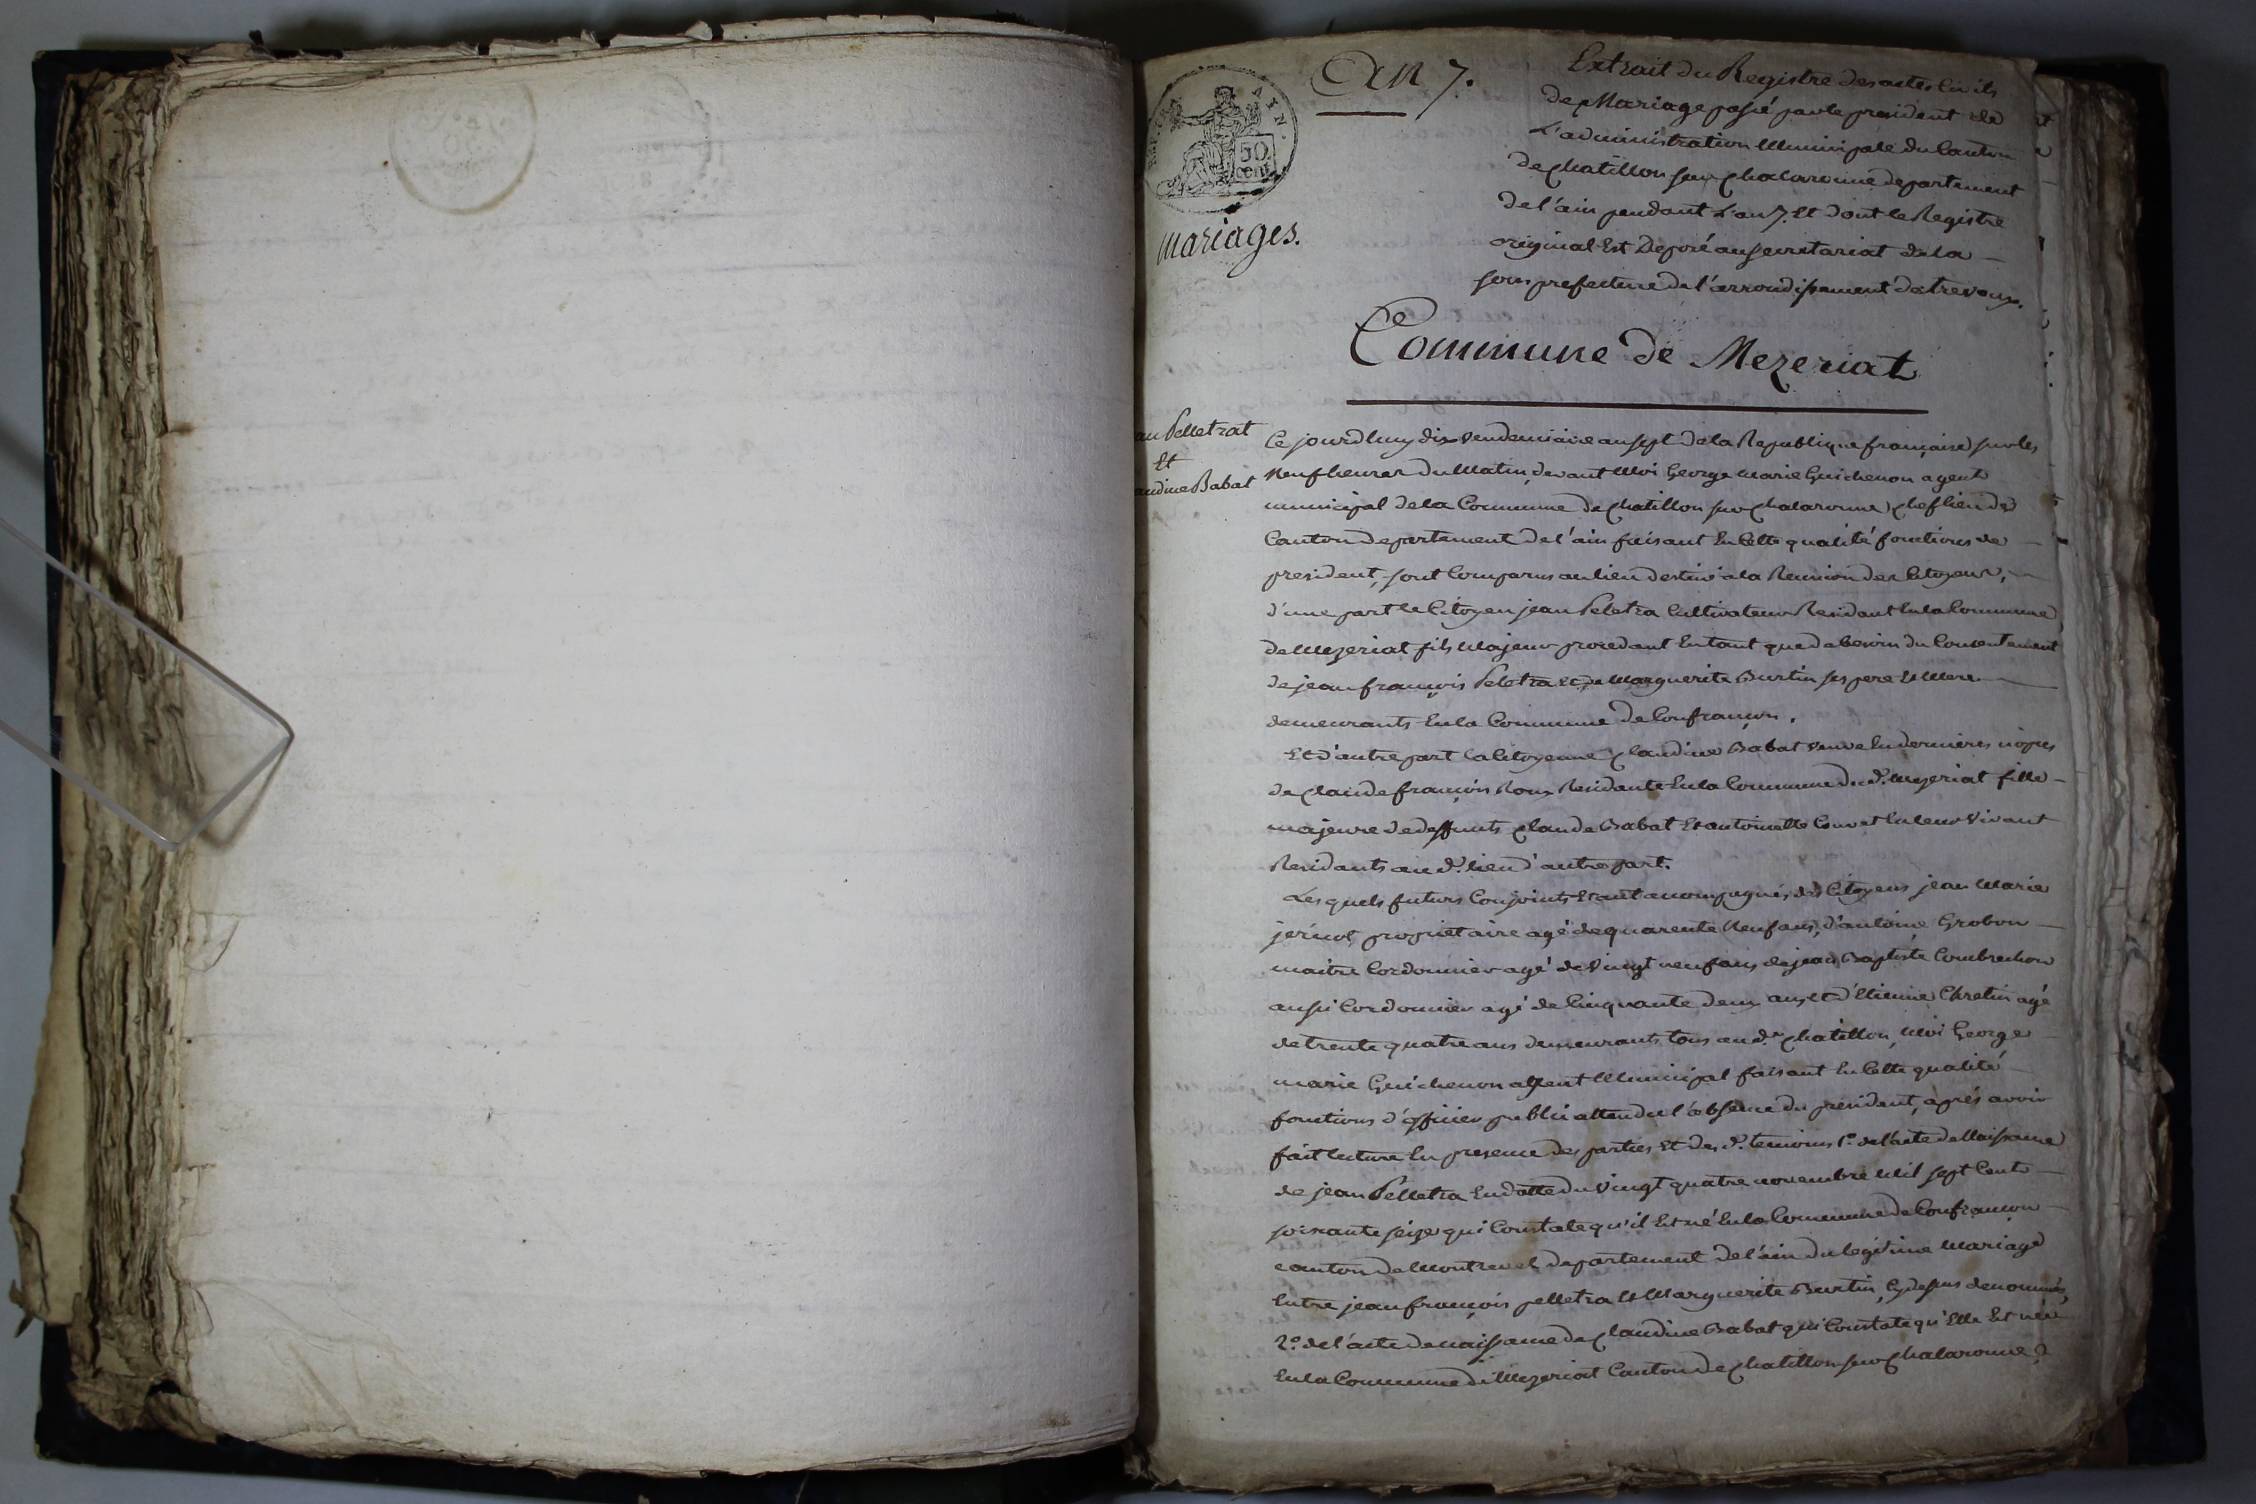 An 7.
Extrait du Registre des actes Civils
de Mariage passé par le president de
L'administration Municipale du Canton
de chatillon sur chalaronne departement
de l'ain pendant L'an 7. Et dont le Registre
original Est Deposé au secretariat de la
sous prefecture de l'arrondissement de trevoux.
AIN.
50
cent
mariages.
Commune de Mezeriat
an Pelletrat
Et
audine Babat
Ce jourdhuy dix Vendemiaire an sept de la Republique française sur les
Neuf heures du Matin, devant Moi George Marie Guichenon agent
municipal de la Commune de chatillon sur chalaronne chef lieu de
Canton departement de l'ain faisant En Cette qualité fonctions de
president, sont Comparus au lieu destiné a la Reunion des Citoyens,
d'une part le Citoyen jean Peletra Cultivateur Residant En la Commune
de Mezeriat fils Majeur procedant En tant que de besoin du Consentement
de jean françois Peletra Et de Marguerite Burtin ses pere Et Mere
demeurants En la Commune de Confrançon.
Et d'autre part la Citoyenne Claudine Babat veuve En dernieres nopces
de claude françois Roux Residante En la Commune du d. Mezeriat fille
majeure de deffunts claude Babat Et antoinette Convet En leur Vivant
Residants au d. lieu d'autre part.
Les quels futurs Conjoints Etant accompagnés des Citoyens jean Marie
propriétaire agé de quarente Neuf ans, d'antoine Grobon
maitre Cordonnier agé de Vingt neuf ans de jean Baptiste Combrechon
aussi Cordonnier agé de Cinquante deux ans et d'Etienne Chretin agé
de trente quatre ans demeurants tous au d. chatillon, Moi George
marie Guichenon agent Municipal faisant En Cette qualité
fonctions d'officier public attendu l'absence du président, après avoir
fait lecture En presence des parties Et des d. temoins 1.º de l'acte de Naissance
de jean Pelletra En datte du Vingt quatre novembre Mil sept Cent
soixante seize qui Constate qu'il Est né En la Commune de Confrançon
canton de Montrevel departement de l'ain du legitime Mariage
Entre jean françois pelletra Et Marguerite Burtin, Cy dessus denommés,
2.º de l'acte de naissance de Claudine Babat qui Constate qu'Elle Est née
En la Commune de Mezeriat Canton de chatillon sur chalaronne